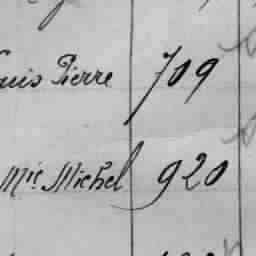 Pierre 709
Mie Michel 920